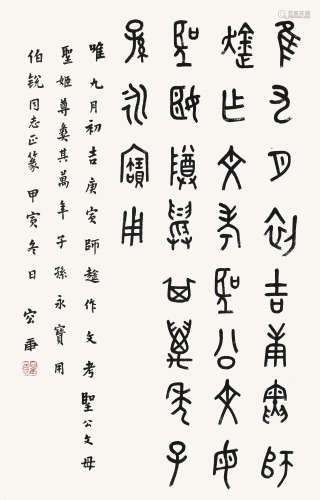 隹九月初吉庚寅師
趛乍文考聖公文母
聖姬尊彝其萬年子
孫永寶用
唯九月初吉庚寅師趛作文考聖公文母
聖姬尊彝其萬年子孫永寶用
伯銳同志正篆甲寅冬日容庚